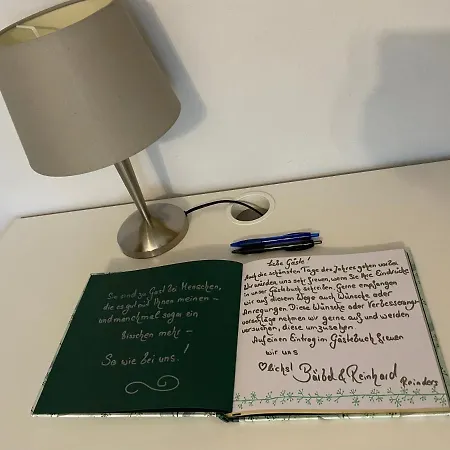 Sie sind zu Gast bei Menschen,
die es gut mit Ihnen meinen –
und manchmal sogar ein
bisschen mehr –
So wie bei uns!
Liebe Gäste!
Auch die schönsten Tage des Jahres gehen vorbei.
Wir würden uns sehr freuen, wenn Sie Ihre Eindrücke
in unser Gästebuch schreiben. Gerne empfangen
wir auf diesem Wege auch Wünsche oder
Anregungen. Diese Wünsche oder Verbesserungs-
vorschläge nehmen wir gerne auf und werden
versuchen, diese umzusetzen.
Auf einen Eintrag im Gästebuch freuen
wir uns
Herzlichst Bärbel & Reinhard
Reinders